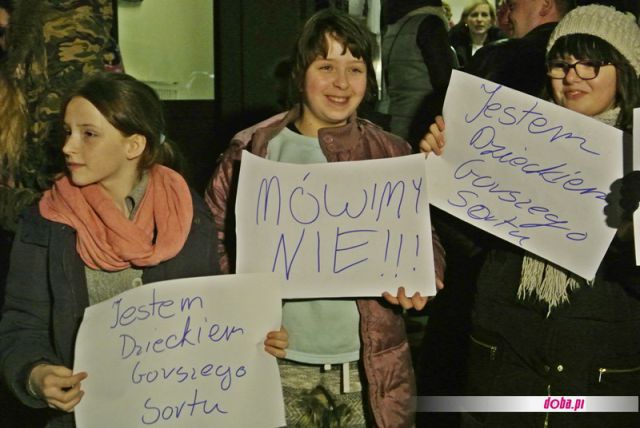 Jestem
Dzieckiem
Gorszego
Sortu
MÓWIMY
NIE!!!
Jestem
Dzieckiem
Gorszego
Sortu
doba.pl